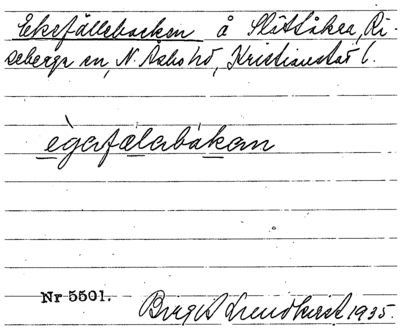 Ekefällebacken å Slättåkra, Ri-
seberga sn, N. Åsbo hd, Kristianstad l.
ègafælabákan
Nr 5501.
Birgit Lundkvist 1935.